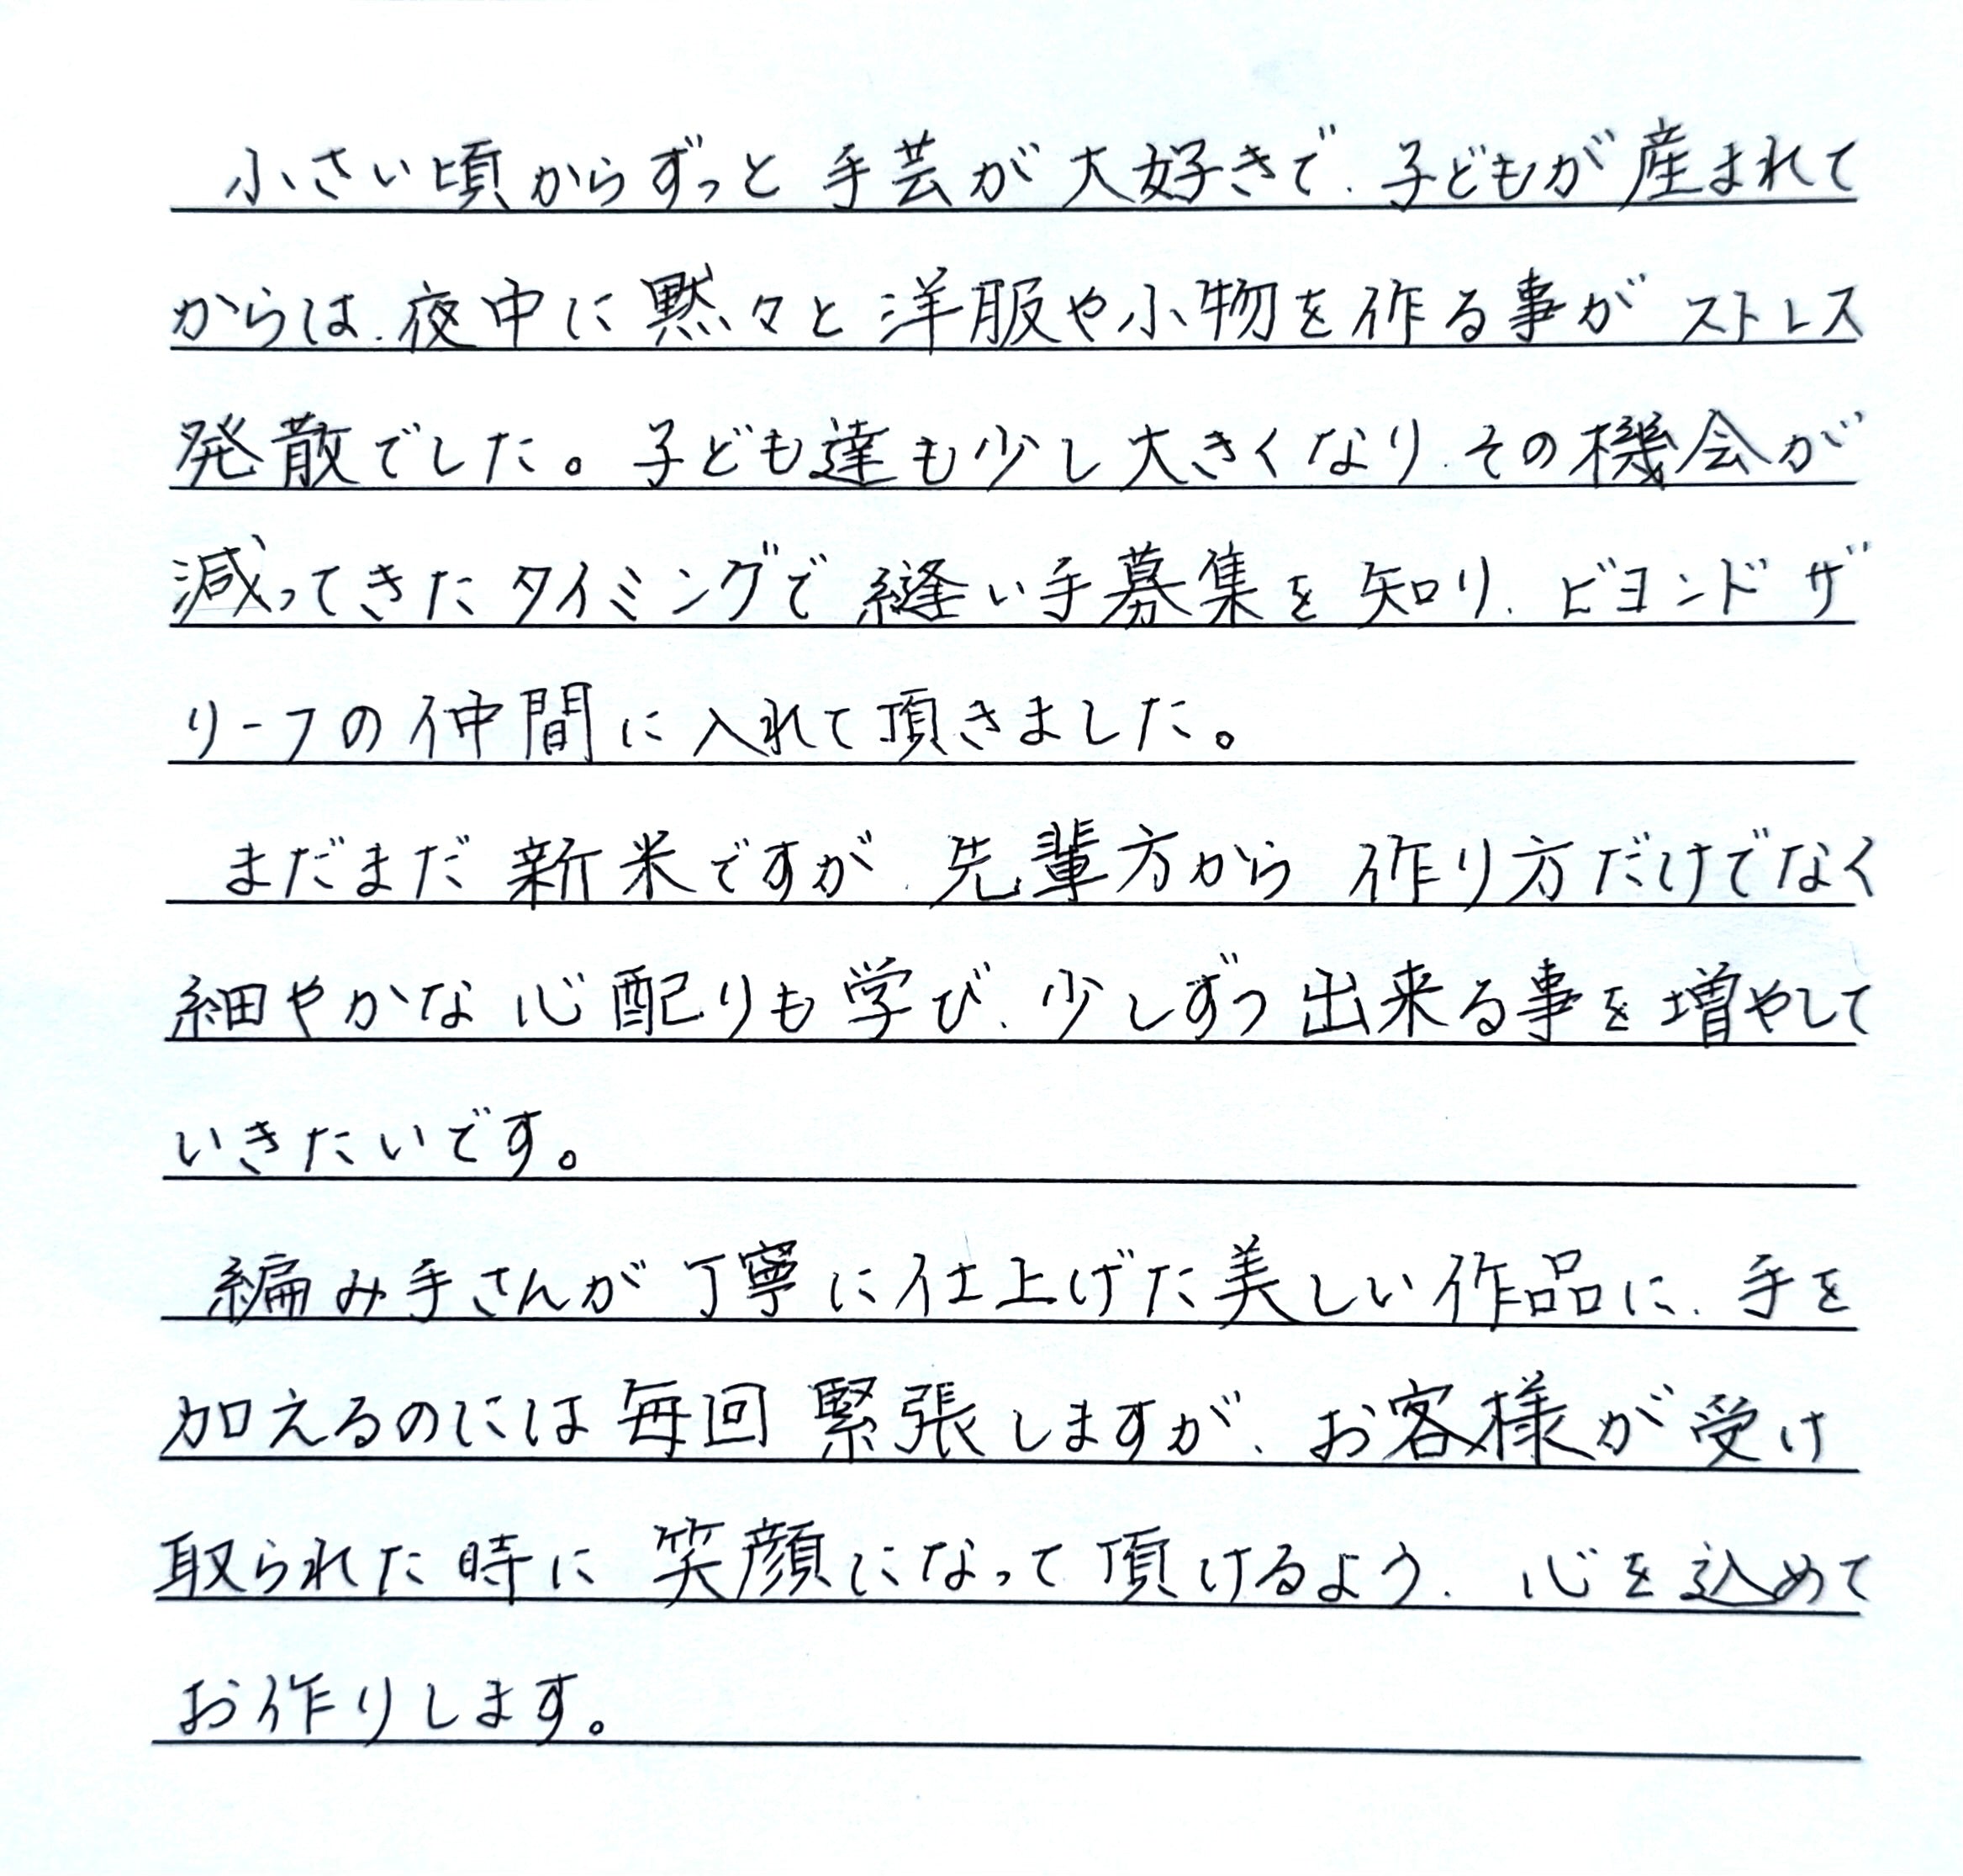 小さい頃からずっと手芸が大好きで、子どもが産まれて
からは、夜中に黙々と洋服や小物を作る事がストレス
発散でした。子ども達も少し大きくなり、その機会が
減ってきたタイミングで縫い手募集を知り、ビヨンドザ
リーフの仲間に入れて頂きました。
まだまだ新米ですが、先輩方から作り方だけでなく
細やかな心配りも学び、少しずつ出来る事を増やして
いきたいです。
編み手さんが丁寧に仕上げた美しい作品に、手を
加えるのには毎回緊張しますが、お客様が受け
取られた時に笑顔になって頂けるよう、心を込めて
お作りします。